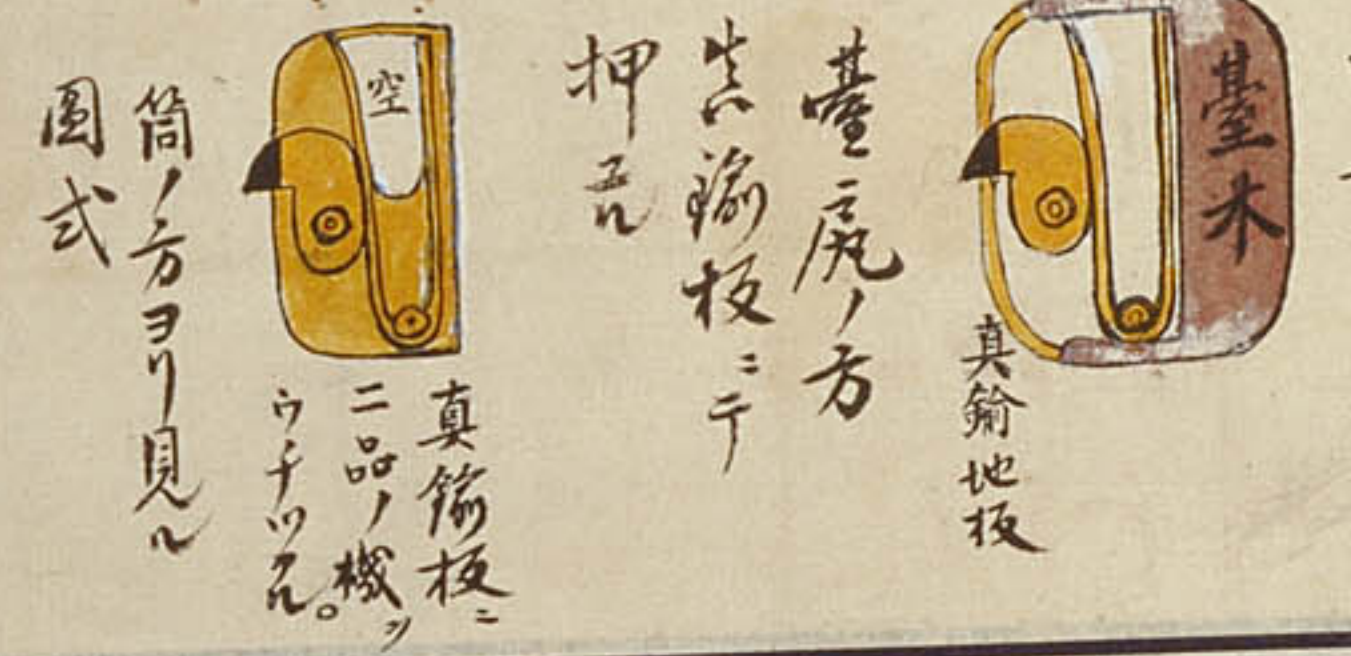 臺木
真鍮地板
臺ニ尻ノ方
真鍮板ニテ
押ヱル
空
真鍮板ニ
二品ノ機ヲ
ウチツケル。
筒ノ方ヨリ見ル
圖式